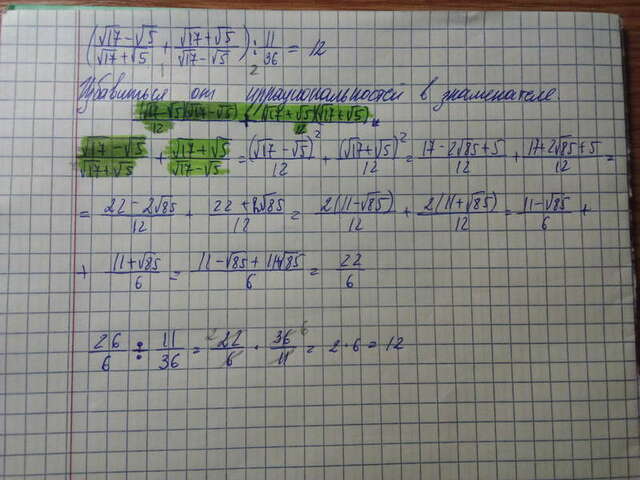 (√17-√5/√17+√5 + √17+√5/√17-√5) : 11/36 = 12
1 2
Избавиться от иррациональностей в знаменателе.
(√17-√5)(√17-√5)/12 (√17+√5)(√17+√5)/12
√17-√5/√17+√5 + √17+√5/√17-√5 = (√17-√5)²/12 + (√17+√5)²/12 = 17-2√85+5/12 + 17+2√85+5/12 =
= 22-2√85/12 + 22+2√85/12 = 2(11-√85)/12 + 2(11+√85)/12 = 11-√85/6 +
+ 11+√85/6 = 11-√85+11+√85/6 = 22/6
26/6 ÷ 11/36 = 22/6 · 36/11 = 2·6 = 12